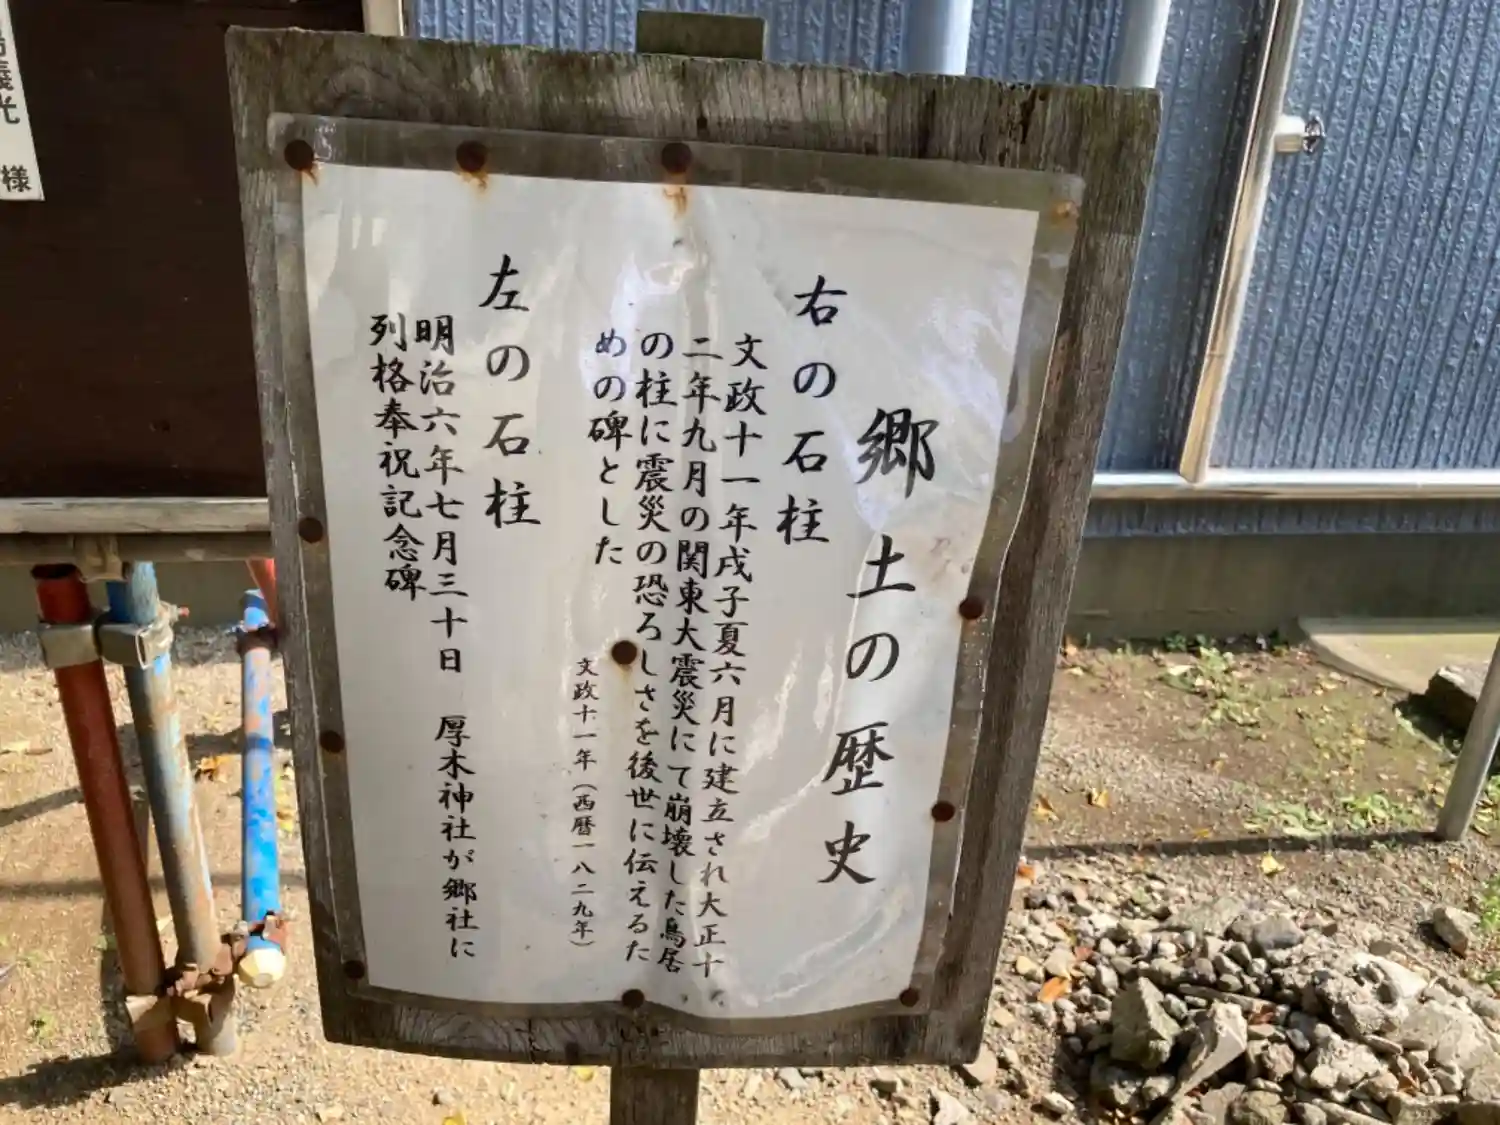 郷土の歴史
右の石柱
文政十一年戌子夏六月に建立され大正十
二年九月の関東大震災にて崩壊した鳥居
の柱に震災の恐ろしさを後世に伝えるた
めの碑とした
文政十一年（西暦一八二九年）
左の石柱
明治六年七月三十日 厚木神社が郷社に
列格奉祝記念碑
義光
様